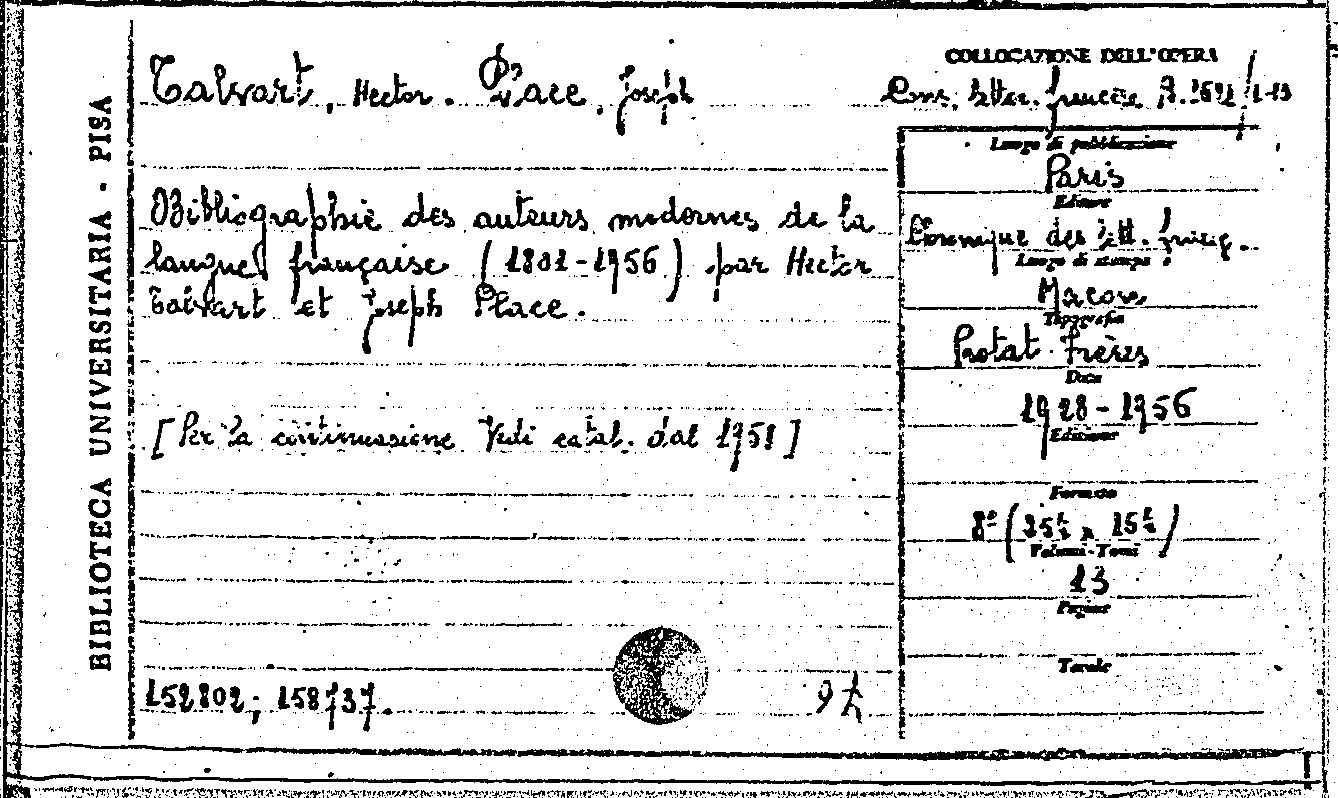 BIBLIOTECA UNIVERSITARIA - PISA
Talvart, Hector. Place, Joseph
Bibliographie des auteurs modernes de la
langue française (1801-1956) par Hector
Talvart et Joseph Place.
[Per la continuazione Vedi catal. dal 1958]
152802; 158737.
COLLOCAZIONE DELL'OPERA
Cons. letter. francese A. /1-13
Luogo di pubblicazione
Paris
Editore
des lett.
Luogo di stampa
Macon
Tipografia
Protat Frères
Data
1928-1956
Edizione
Formato
8º (25½ x 15½)
Volumi-Tomi
13
Pagine
Tavole